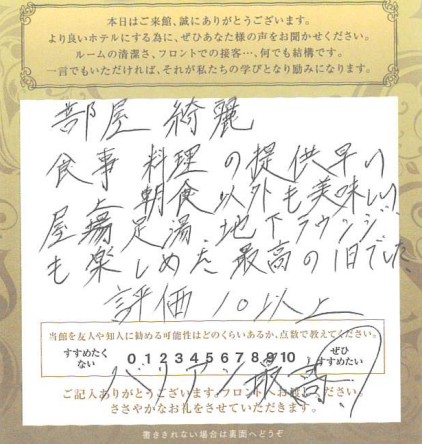 本日はご来館、誠にありがとうございます。
より良いホテルにする為に、ぜひあなた様の声をお聞かせください。
ルームの清潔さ、フロントでの接客…、何でも結構です。
一言でもいただければ、それが私たちの学びとなり励みになります。
部屋 綺麗
食事 料理の提供早い
屋上 朝食以外も美味しい
足湯 地下ラウンジ
も楽しめた 最高の1日でした
評価 10以上
当館を友人や知人に勧める可能性はどのくらいあるか、点数で教えてください。
すすめたくない 0 1 2 3 4 5 6 7 8 9 10 ぜひすすめたい
バリアン最高
ご記入ありがとうございます。フロントへお渡しください。
ささやかなお礼をさせていただきます。
書ききれない場合は裏面へどうぞ